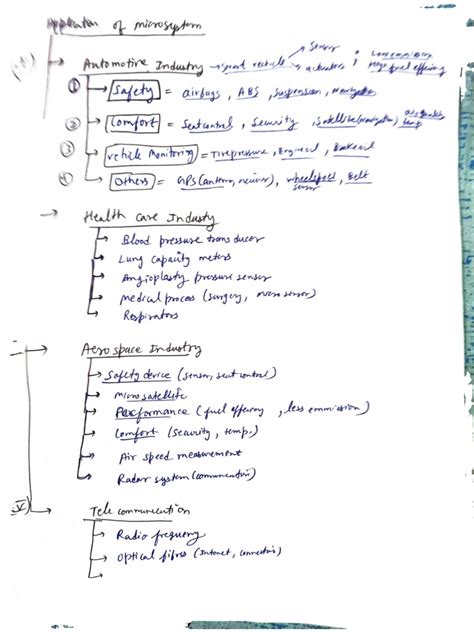 Application of microsystem
Automotive Industry → smart vehicle → Sensor
→ actuators ; Low emmission
High fuel efficiency
① Safety = airbags, ABS, Suspension, Navigation
② Comfort = Seatcontrol, Security, Satellite (navigation)
③ vehicle Monitoring = Tirepressure, Engineoil, Brakeoil
④ Others = GPS (antenna, reciever), wheelspeed sensor, Belt
→ Health Care Industry
→ Blood pressure transducer
→ Lung Capacity meters
→ Angioplasty pressure sensor
→ Medical process (surgery, micro sensor)
→ Respirators
→ Aerospace Industry
→ Safety device (sensor, seat control)
→ Microsatellite
→ Performance (fuel efficiency, less emmission)
→ Comfort (Security, temp.)
→ Air speed measurement
→ Radar system (communication)
→ Telecommunication
→ Radio frequency
→ Optical fibres (Internet, connectors)
→